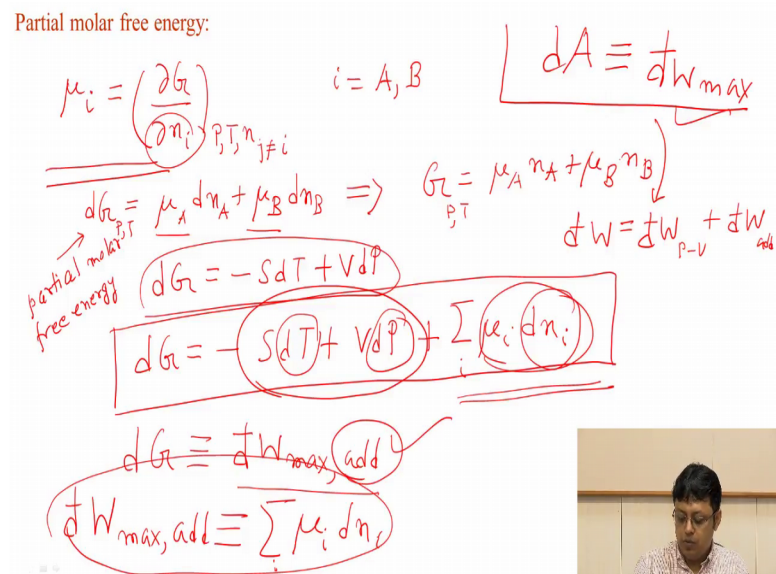 Partial molar free energy:
μ_i = (∂G/∂n_i)_{P,T,n_{j≠i}}
i = A, B
dA ≡ đW_max
dG_{P,T} = μ_A dn_A + μ_B dn_B ⇒ G_{P,T} = μ_A n_A + μ_B n_B
đW = đW_{P-V} + đW_{add}
partial molar
free energy
dG = -SdT + VdP
dG = - SdT + VdP + Σ_i μ_i dn_i
dG ≡ đW_{max, add}
đW_{max, add} ≡ Σ_i μ_i dn_i